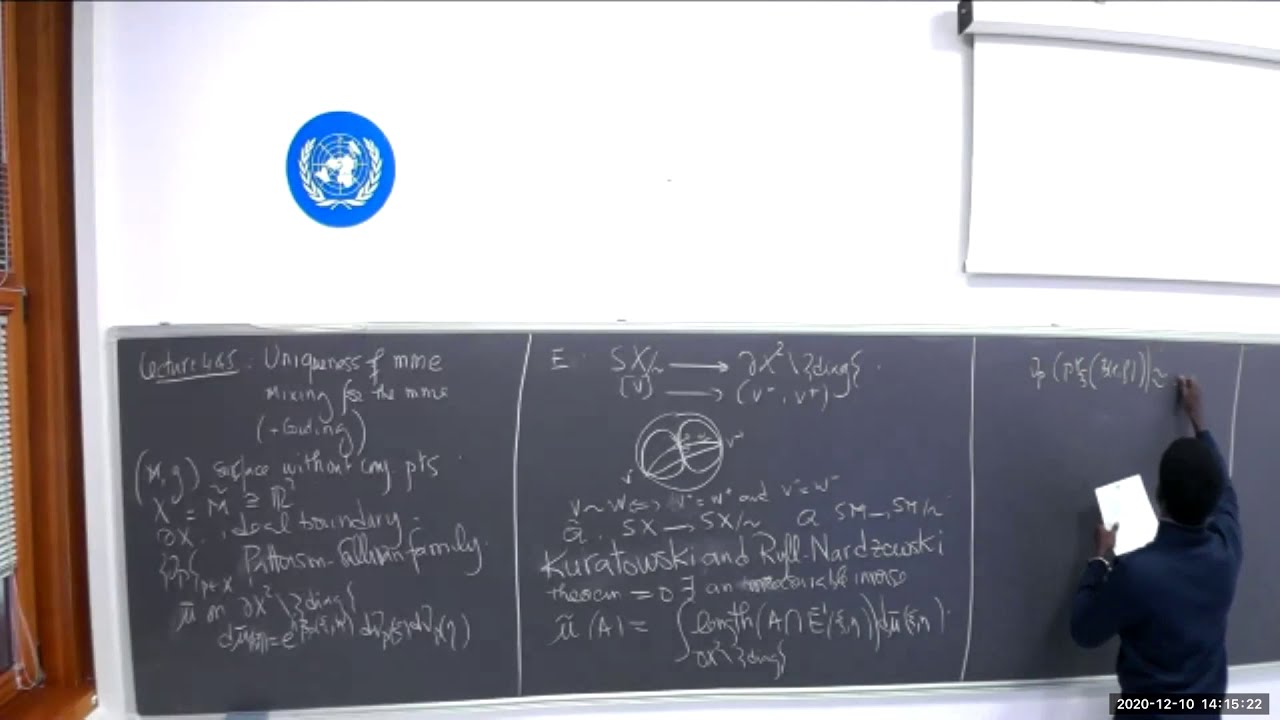 Lecture 4&5: Uniqueness of mme
Mixing for the mme
(+Coding)
(M,g) surface without conj. pts
X = M̃ ≅ ℝ²
∂X : ideal boundary
{ν_p}_{p∈X} Patterson-Sullivan family
μ̄ on ∂X²\{diag}
E: SX/~ → ∂X²\{diag}
[v] → (v⁻, v⁺)
v⁺
v⁻
v ~ w ⟺ v⁺=w⁺ and v⁻=w⁻
Q̃: SX → SX/~ Q: SM → SM/~
Kuratowski and Ryll-Nardzewski
theorem ⇒ ∃ an inverse
μ̃(A) = ∫ length(A∩Ē⁻¹(ξ,η))dμ̄(ξ,η)
∂X²\{diag}
2020-12-10 14:15:22